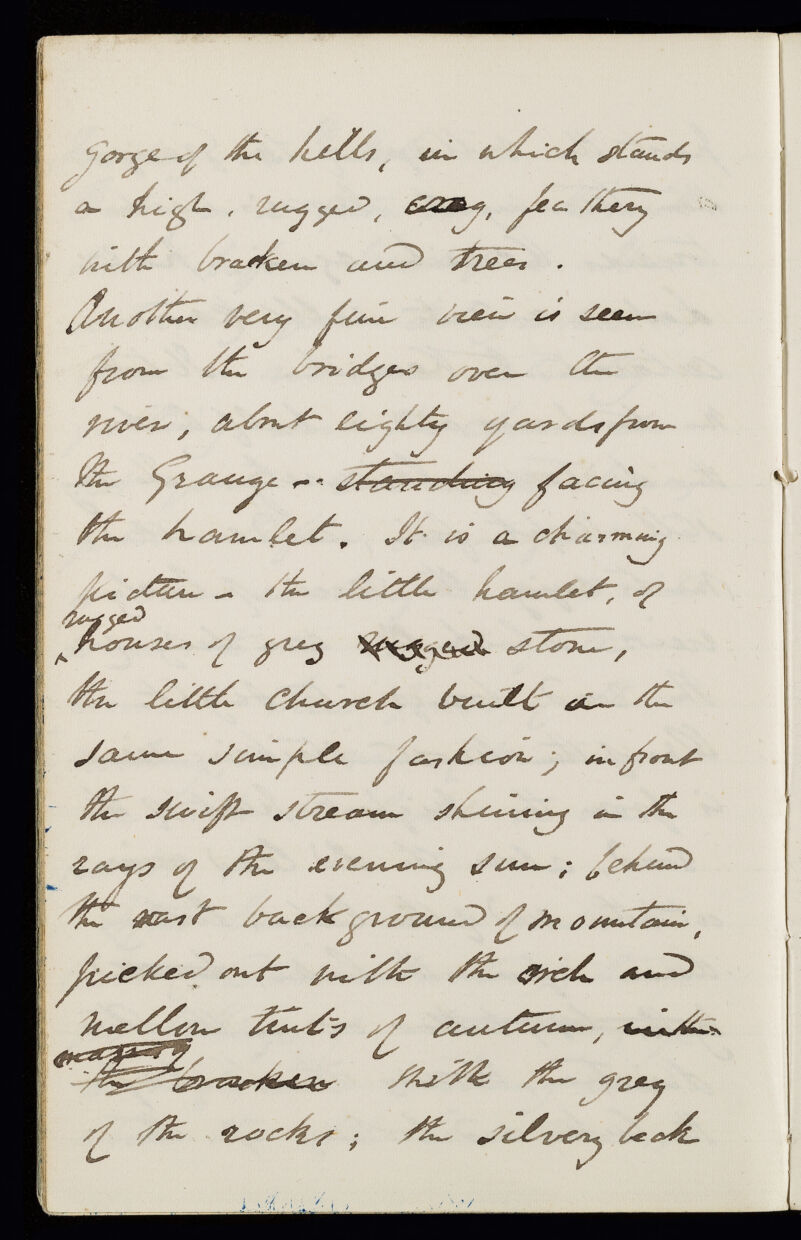 gorge of the hills, in which stands
a high, rugged, crag, feathery
with bracken and trees.
Another very fine view is seen
from the bridges over the
river, about eighty yards from
the Grange - standing facing
the hamlet. It is a charming
picture - the little hamlet, of
rugged
houses of grey rugged stone,
the little church built in the
same simple fashion; in front
the swift stream shining in the
rays of the evening sun; behind
the vast background of mountain,
picked out with the rich and
mellow tints of autumn, with
the bracken with the grey
of the rocks; the silvery beck